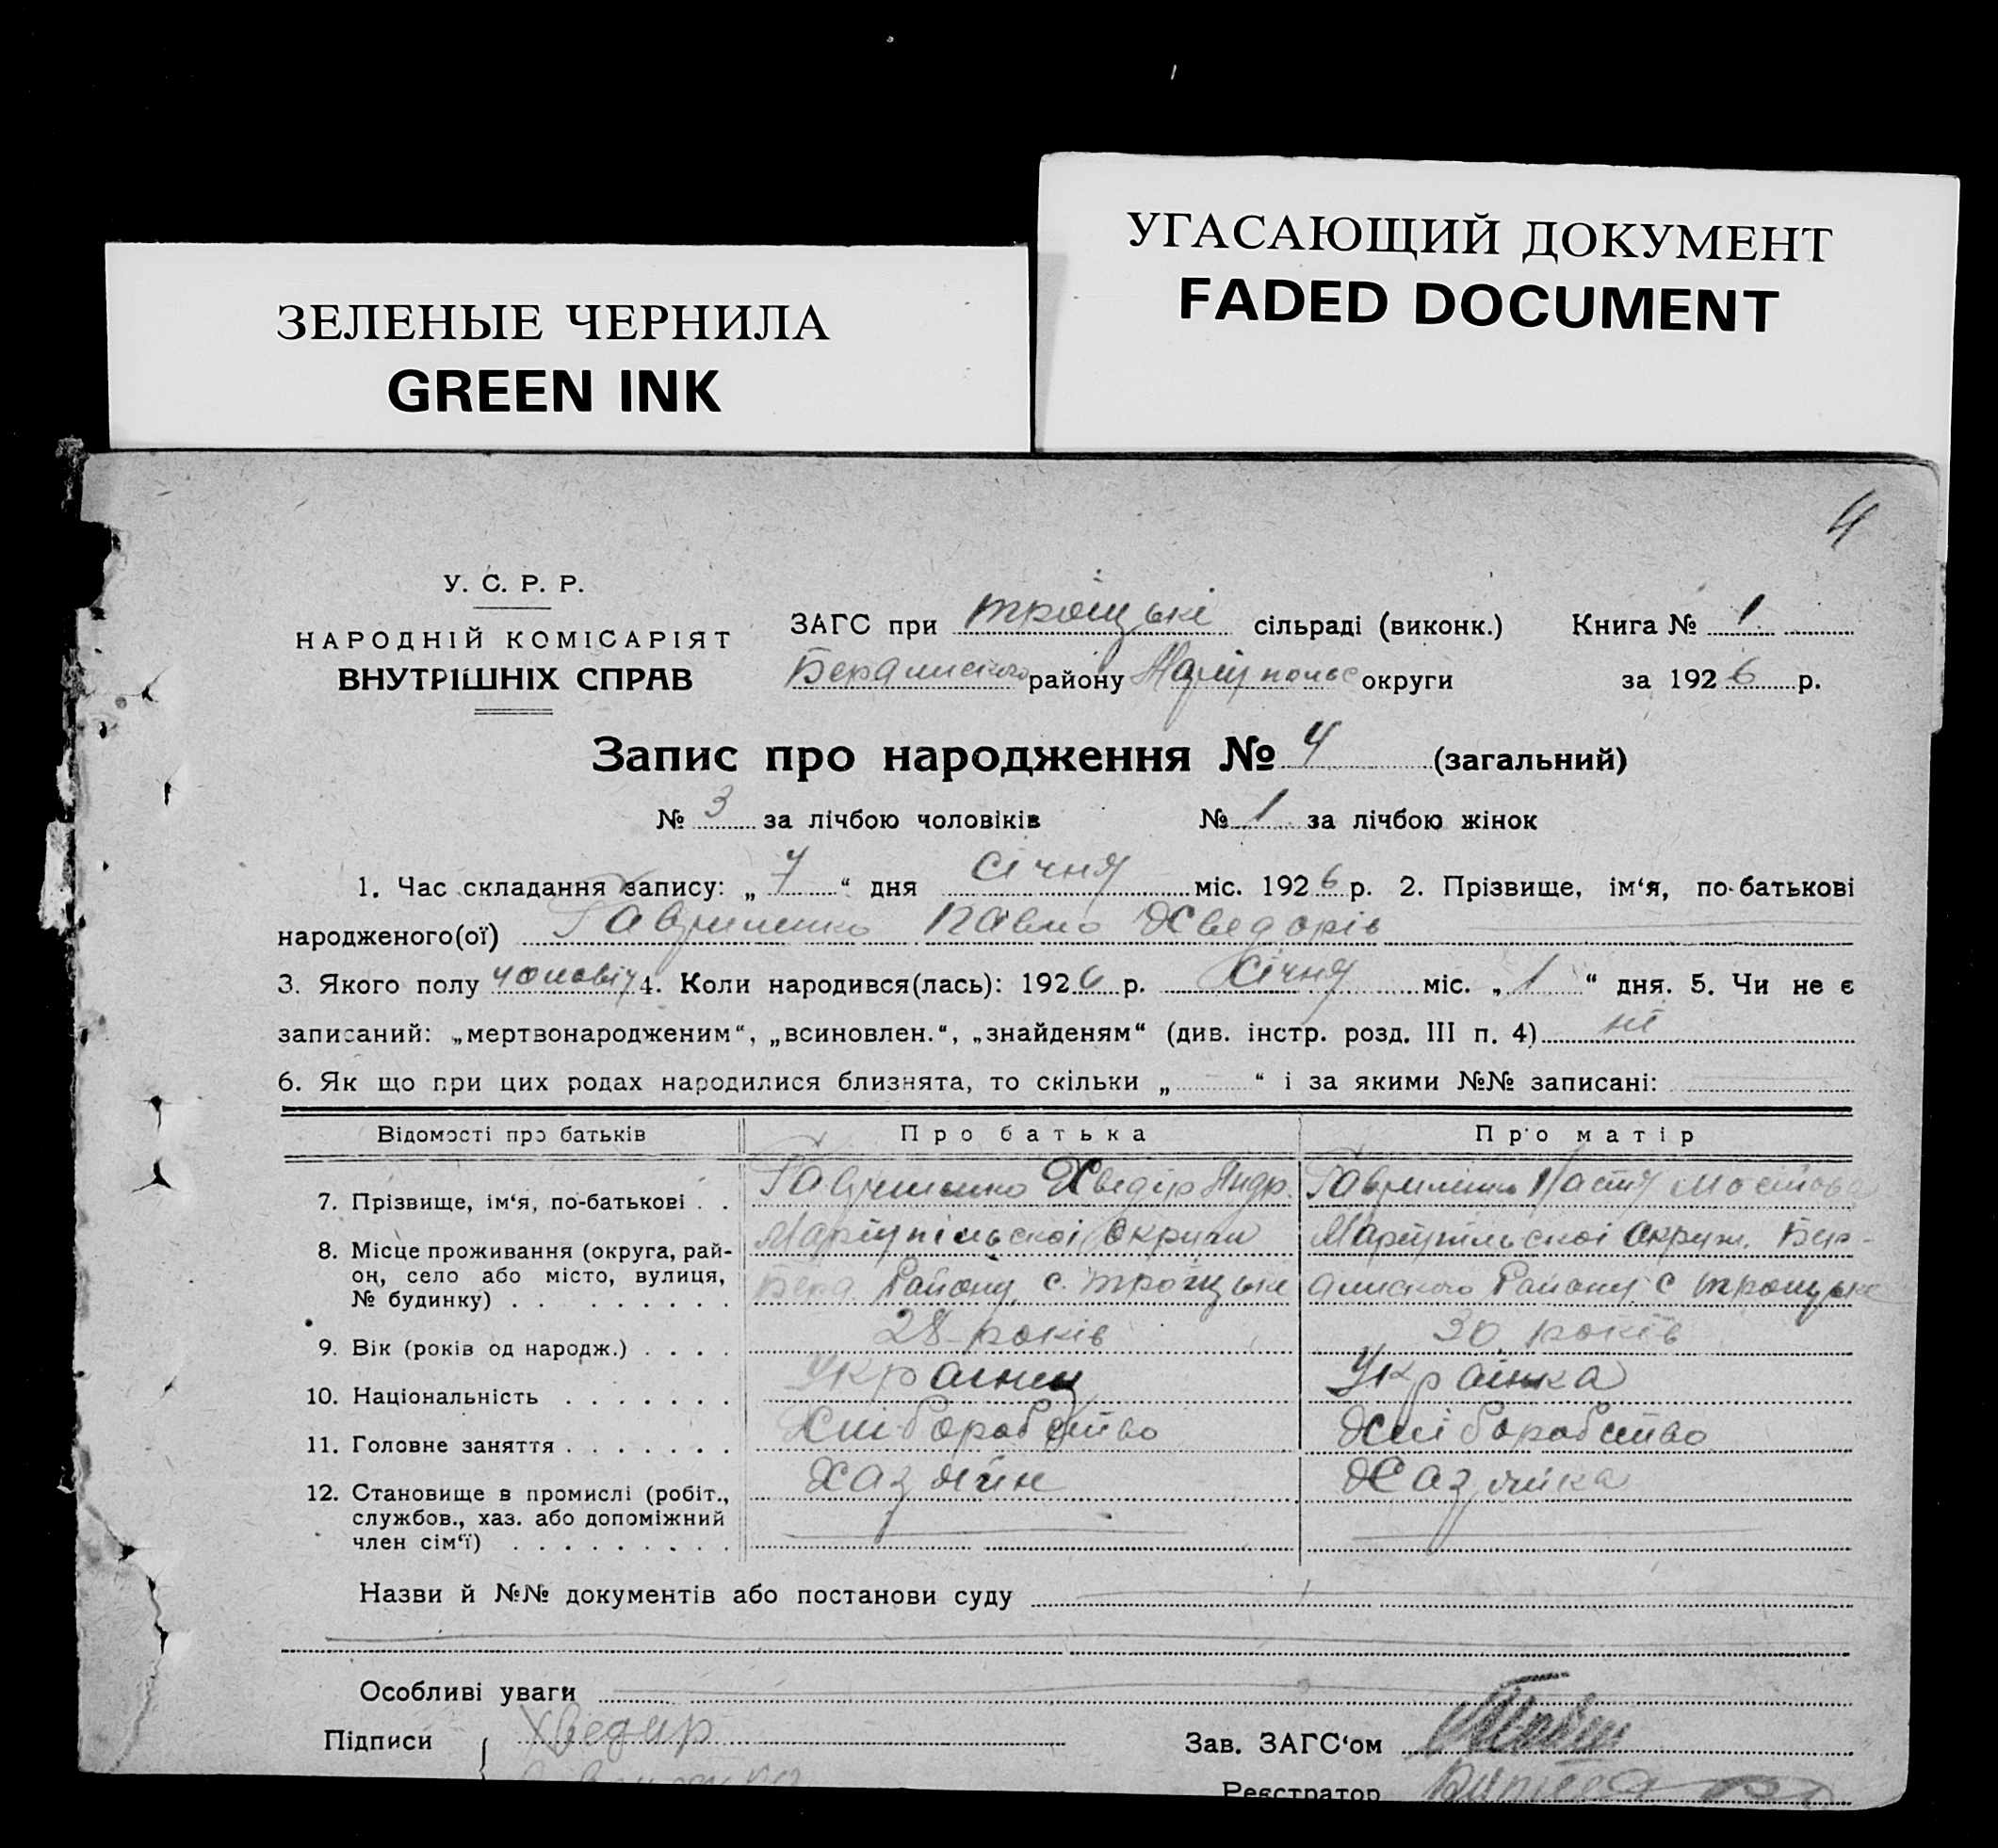 УГАСАЮЩИЙ ДОКУМЕНТ
FADED DOCUMENT
ЗЕЛЕНЫЕ ЧЕРНИЛА
GREEN INK
4
У. С. Р. Р.
НАРОДНІЙ КОМІСАРІЯТ
ВНУТРІШНІХ СПРАВ
ЗАГС при сільраді (виконк.) Книга № 1
району округи за 1926 р.
Запис про народження № 4 (загальний)
№ 3 за лічбою чоловіків № 1 за лічбою жінок
1. Час складання запису: „7“ дня січня міс. 1926 р. 2. Прізвище, ім‘я, по-батькові
народженого(ої) Гавриленко Павло Хведорів
3. Якого полу чоловіч 4. Коли народився(лась): 1926 р. Січня міс. „1“ дня. 5. Чи не є
записаний: „мертвонародженим“, „всиновлен.“, „знайденям“ (див. інстр. розд. III п. 4) ні
6. Як що при цих родах народилися близнята, то скільки „ “ і за якими №№ записані:
Відомості про батьків Про батька Про матір
7. Прізвище, ім‘я, по-батькові . . Гавриленко Хведір Андр. Гавриленко Настя
8. Місце проживання (округа, рай- Маріупільскоі Округи Маріупільскоі Округи. Бер-
он, село або місто, вулиця, Району с. Троїцьке Району с Троицьке
№ будинку) . . . . . . . .
9. Вік (років од народж.) . . . . 28 років 30 років
10. Національність . . . . . . . Украинец Украінка
11. Головне заняття . . . . . . . Хліборобство Хліборобство
12. Становище в промислі (робіт., Хазяйн Хазяйка
службов., хаз. або допоміжний
член сім‘ї) . . . . . . . . .
Назви й №№ документів або постанови суду
Особливі уваги
Підписи { Хведир Зав. ЗАГС‘ом
Реєстратор